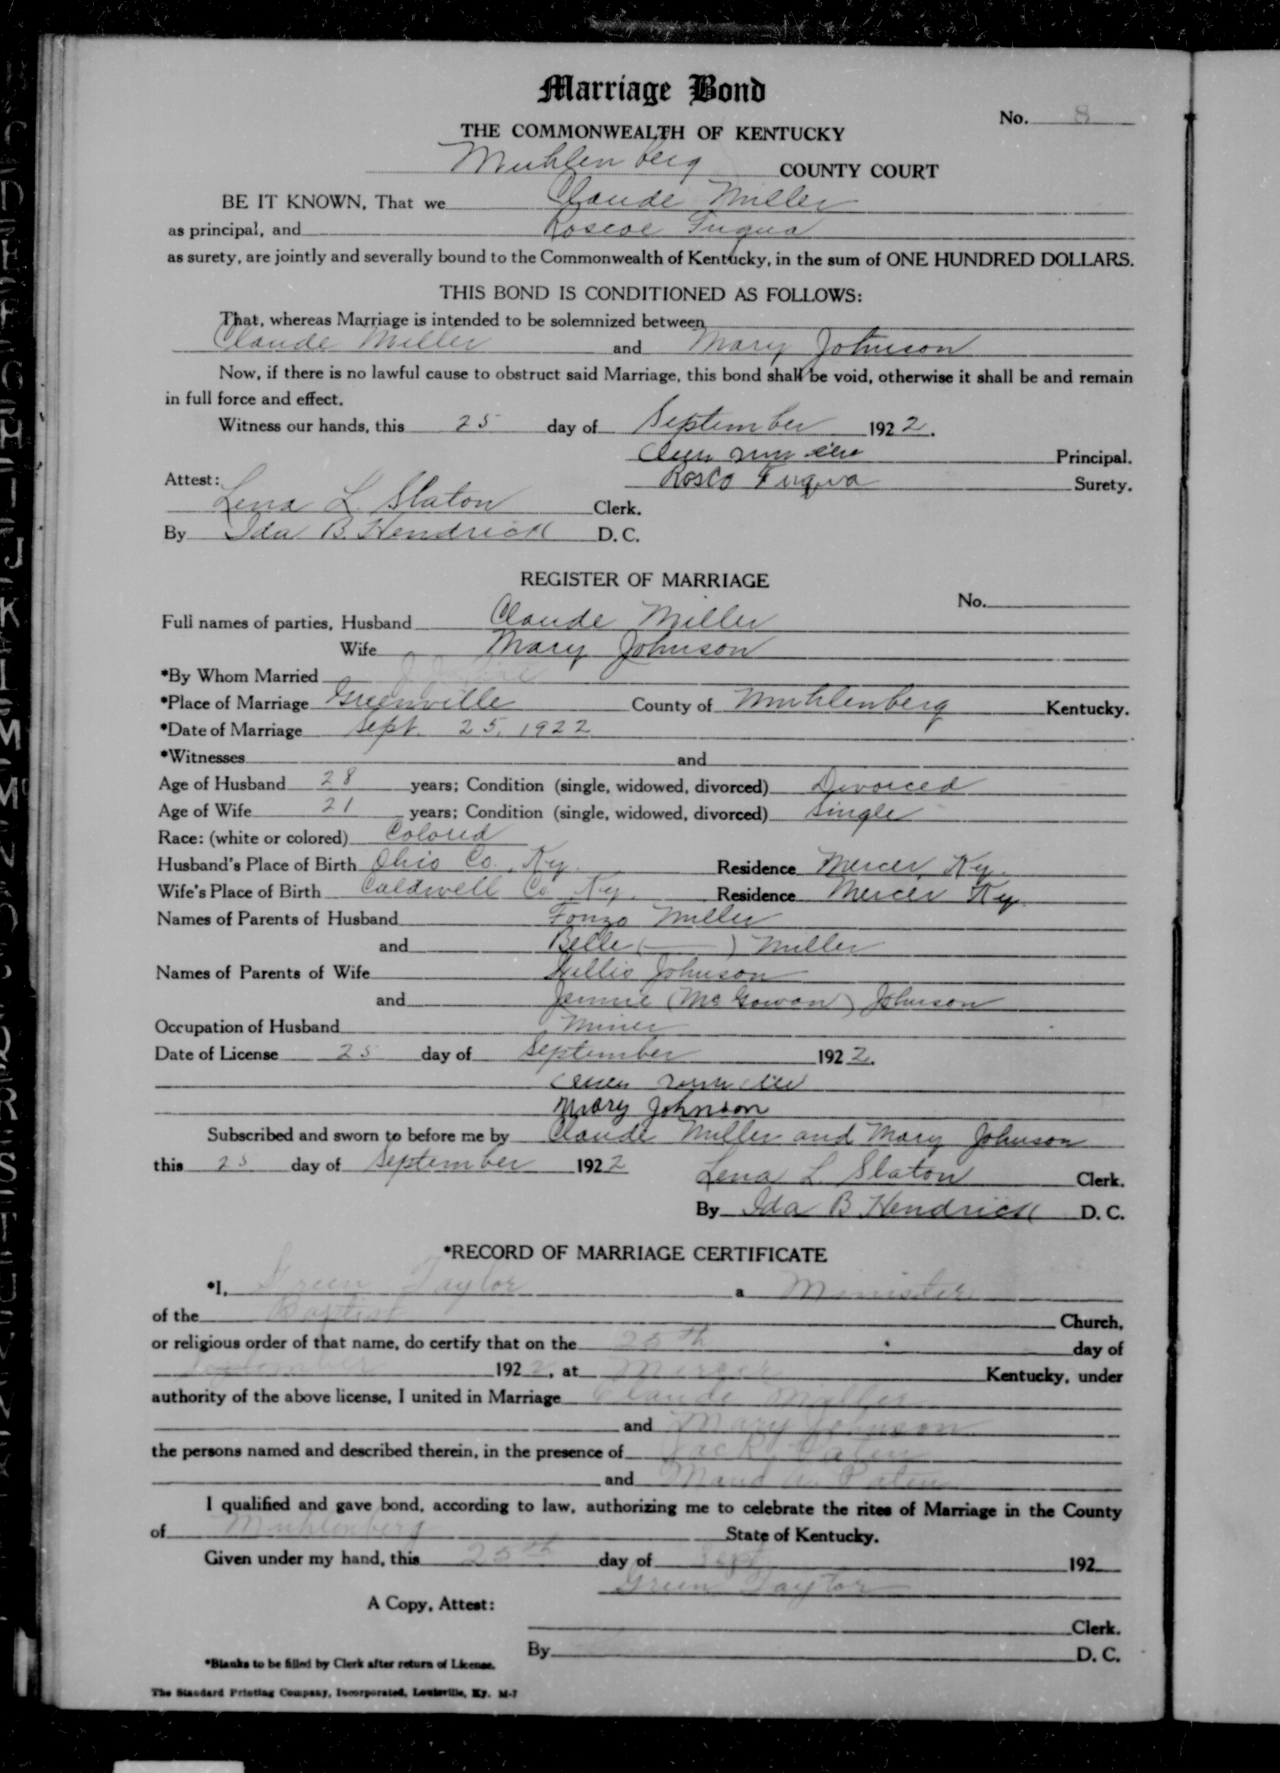 Marriage Bond
No. 8
THE COMMONWEALTH OF KENTUCKY
Muhlenberg COUNTY COURT
BE IT KNOWN, That we Claude Miller
as principal, and Roscoe Fuqua
as surety, are jointly and severally bound to the Commonwealth of Kentucky, in the sum of ONE HUNDRED DOLLARS.
THIS BOND IS CONDITIONED AS FOLLOWS:
That, whereas Marriage is intended to be solemnized between
Claude Miller and Mary Johnson
Now, if there is no lawful cause to obstruct said Marriage, this bond shall be void, otherwise it shall be and remain
in full force and effect.
Witness our hands, this 25 day of September 1922.
Principal.
Rosco Fuqua Surety.
Attest:
Lena L. Slaton Clerk.
By Ida B. Hendrick D. C.
REGISTER OF MARRIAGE
No.
Full names of parties, Husband Claude Miller
Wife Mary Johnson
*By Whom Married
*Place of Marriage Greenville County of Muhlenberg Kentucky.
*Date of Marriage Sept. 25, 1922
*Witnesses and
Age of Husband 28 years; Condition (single, widowed, divorced) Divorced
Age of Wife 21 years; Condition (single, widowed, divorced) Single
Race: (white or colored) Colored
Husband's Place of Birth Ohio Co., Ky. Residence Mercer, Ky.
Wife's Place of Birth Caldwell Co Ky. Residence Mercer Ky.
Names of Parents of Husband Fonzo Miller
and Belle ( — ) Miller
Names of Parents of Wife Johnson
and Jennie (McGowan) Johnson
Occupation of Husband Miner
Date of License 25 day of September 1922.
Mary Johnson
Subscribed and sworn to before me by Claude Miller and Mary Johnson
this 25 day of September 1922
Lena L. Slaton Clerk.
By Ida B Hendrick D. C.
*RECORD OF MARRIAGE CERTIFICATE
*I, Green Taylor a Minister
of the Baptist Church,
or religious order of that name, do certify that on the 25th day of
September 1922, at Mercer Kentucky, under
authority of the above license, I united in Marriage Claude Miller
and Mary Johnson
the persons named and described therein, in the presence of Jack Paten
and Maud A. Paten
I qualified and gave bond, according to law, authorizing me to celebrate the rites of Marriage in the County
of Muhlenberg State of Kentucky.
Given under my hand, this 25th day of Sept 192
Green Taylor
A Copy, Attest:
Clerk.
By D. C.
*Blanks to be filled by Clerk after return of License.
The Standard Printing Company, Incorporated, Louisville, Ky. M-7